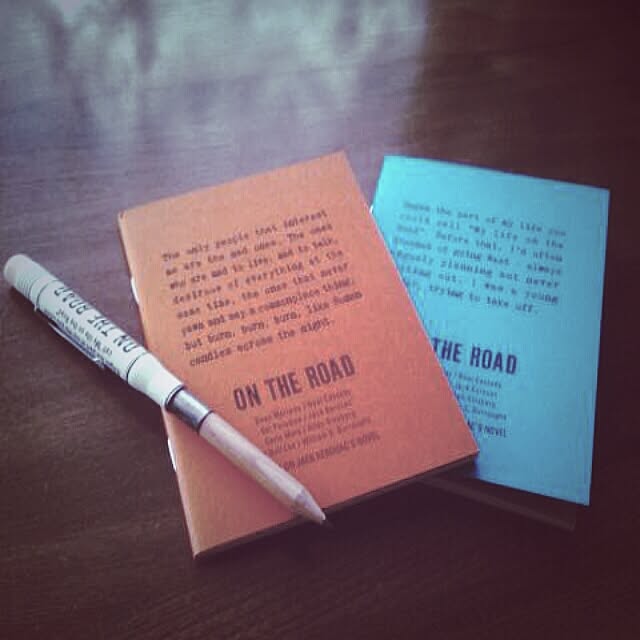 ON THE ROAD
The only people that interest
me are the mad ones. The ones
who are mad to live, mad to talk,
desirous of everything at the
same time, the ones that never
yawn and say a commonplace thing.
but burn, burn, burn, like roman
candles across the night.
ON THE ROAD
Dean Moriarty / Neal Cassady
Sal Paradise / Jack Kerouac
Carlo Marx / Allen Ginsberg
Lee / William S. Burroughs
JACK KEROUAC'S NOVEL
Began the part of my life you
could call "my life on the
road". Before that, I'd often
dreamed of going West, always
vaguely planning but never
taking off. I was a young
, trying to take off.
THE ROAD
/ Neal Cassady
/ Jack Kerouac
Ginsberg
Burroughs
'S NOVEL